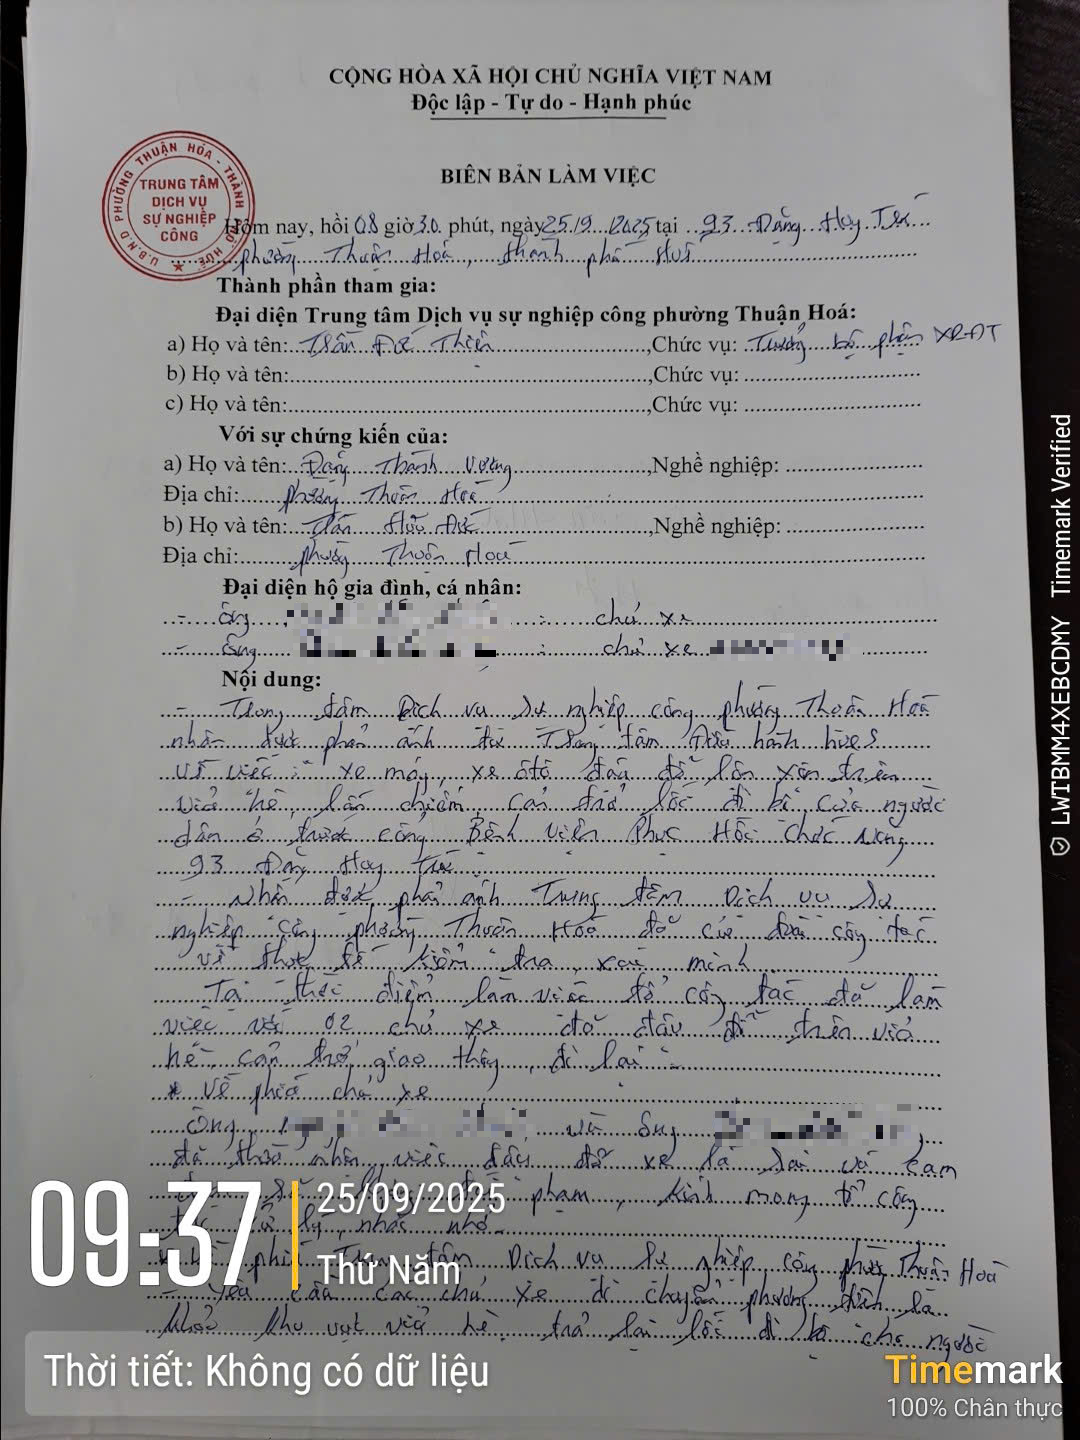 CỘNG HÒA XÃ HỘI CHỦ NGHĨA VIỆT NAM
Độc lập - Tự do - Hạnh phúc
BIÊN BẢN LÀM VIỆC
U.B.N.D PHƯỜNG THUẬN HÓA - THÀNH PHỐ HUẾ
TRUNG TÂM
DỊCH VỤ
SỰ NGHIỆP
CÔNG
Hôm nay, hồi 08 giờ 30 phút, ngày 25/9/2025 tại 93 Đặng Huy Trứ
phường Thuận Hoá, thành phố Huế
Thành phần tham gia:
Đại diện Trung tâm Dịch vụ sự nghiệp công phường Thuận Hoá:
a) Họ và tên: Trần Đức Thiện, Chức vụ: Trưởng bộ phận
b) Họ và tên:, Chức vụ:
c) Họ và tên:, Chức vụ:
Với sự chứng kiến của:
a) Họ và tên: Đặng Thành Vương, Nghề nghiệp:
Địa chỉ: phường Thuận Hoá
b) Họ và tên: Trần Hữu Đức, Nghề nghiệp:
Địa chỉ: phường Thuận Hoá
Đại diện hộ gia đình, cá nhân:
- ông : chủ xe
- ông : chủ xe
Nội dung:
- Trung tâm Dịch vụ sự nghiệp công phường Thuận Hoá
nhận được phản ánh từ Trung tâm Điều hành
về việc: "xe máy, xe ôtô đậu đỗ lộn xộn trên
vỉa hè, lấn chiếm, cản trở lối đi bộ của người
dân ở trước cổng Bệnh viện Phục Hồi chức năng
93 Đặng Huy Trứ
- Nhận được phản ánh Trung tâm Dịch vụ sự
nghiệp công phường Thuận Hoá đã cử đội công tác
về thực tế kiểm tra, xác minh
Tại thời điểm làm việc tổ công tác đã làm
việc với 02 chủ xe đã đậu đỗ trên vỉa
hè, cản trở giao thông, đi lại
* Về phía chủ xe
Ông và ông
đã thừa nhận việc đậu đỗ xe là sai và cam
phạm, kính mong tổ công
xử lý, nhắc nhở
phía Trung tâm Dịch vụ sự nghiệp công phường Thuận Hoá
- Yêu cầu các chủ xe di chuyển phương tiện ra
khỏi khu vực vỉa hè, trả lại lối đi bộ cho người
09:37
25/09/2025
Thứ Năm
Thời tiết: Không có dữ liệu
Timemark
100% Chân thực
LWTBMM4XEBCDMY Timemark Verified